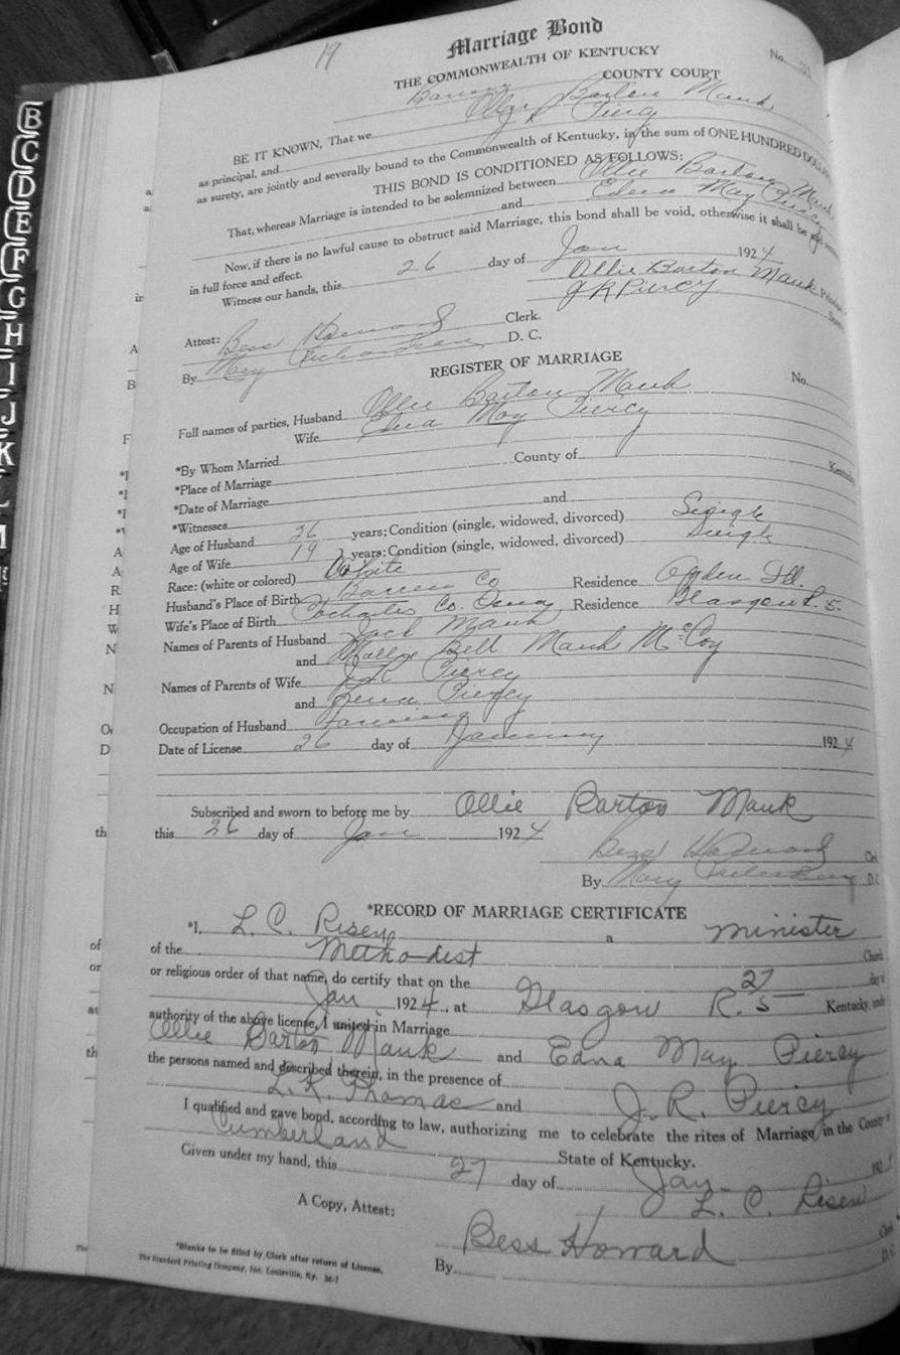 19
Marriage Bond
No.
THE COMMONWEALTH OF KENTUCKY
Barren COUNTY COURT
BE IT KNOWN, That we Ollie Barton Mauk,
as principal, and J R Piercy
as surety, are jointly and severally bound to the Commonwealth of Kentucky, in the sum of ONE HUNDRED DOLL
THIS BOND IS CONDITIONED AS FOLLOWS:
That, whereas Marriage is intended to be solemnized between Ollie Barton Mauk
and Edna May Piercy
Now, if there is no lawful cause to obstruct said Marriage, this bond shall be void, otherwise it shall be
in full force and effect.
Witness our hands, this 26 day of Jan 1924
Ollie Barton Mauk
J R Piercy
Attest: Bess Howard Clerk.
By Mary Richardson D. C.
REGISTER OF MARRIAGE
No.
Full names of parties, Husband Ollie Barton Mauk
Wife Edna May Piercy
*By Whom Married
*Place of Marriage County of Kentucky
*Date of Marriage
*Witnesses and
Age of Husband 26 years; Condition (single, widowed, divorced) Single
Age of Wife 19 years; Condition (single, widowed, divorced) Single
Race: (white or colored) White
Husband's Place of Birth Barren Co Residence Ogden Ill.
Wife's Place of Birth Co. Residence Glasgow R. 5.
Names of Parents of Husband Jack Mauk
and Bell Mauk McCoy
Names of Parents of Wife J R Piercy
and Piercy
Occupation of Husband Farming
Date of License 26 day of January 1924
Subscribed and sworn to before me by Ollie Barton Mauk
this 26 day of Jan 1924
Bess Howard
By Mary Richardson D.C
*RECORD OF MARRIAGE CERTIFICATE
*I, L. C. Risen a minister
of the Methodist Church
or religious order of that name, do certify that on the 27 day of
Jan 1924, at Glasgow R. 5 Kentucky, under
authority of the above license, I united in Marriage
Ollie Barton Mauk and Edna May Piercy
the persons named and described therein, in the presence of
L. R. Thomas and J. R. Piercy
I qualified and gave bond, according to law, authorizing me to celebrate the rites of Marriage in the County of
Cumberland State of Kentucky.
Given under my hand, this 27 day of Jan 192
L. C. Risen
A Copy, Attest:
Bess Howard
By D.C
*Blanks to be filled by Clerk after return of License.
The Standard Printing Company, Inc. Louisville, Ky.
B
C
D
E
F
G
H
I
J
K
L